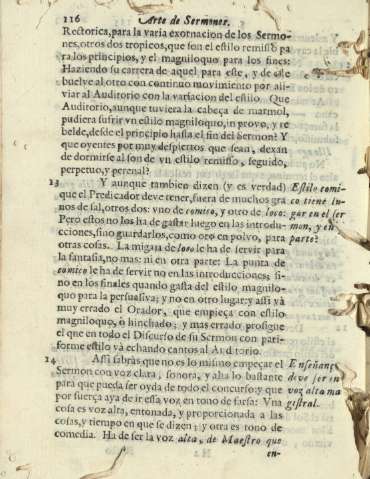 116 Arte de Sermones.
Rectorica, para la varia exornacion de los Sermo-
nes, otros dos tropicos, que son el estilo remisso pa
ra los principios, y el magniloquo para los fines:
Haziendo su carrera de aquel para este, y de este
buelve al otro con continuo movimiento por ali-
viar al Auditorio con la variacion del estilo. Que
Auditorio, aunque tuviera la cabeça de marmol,
pudiera sufrir vn estilo magniloquo, in provo, y re
belde, desde el principio hasta el fin del Sermon? Y
que oyentes por muy despiertos que sean, dexàn
de dormirse al son de vn estilo remisso, seguido,
perpetuo, y perenal?
13 Y aunque tambien dizen (y es verdad)
que el Predicador deve tener, fuera de muchos gra
nos de sal, otros dos: vno de comico, y otro de loco:
Pero estos no los ha de gastar luego en las introdu-
cciones, sino guardarlos, como oro en polvo, para
otras cosas. La migaja de loco le ha de servir para
la fantasia, no mas: ni en otra parte: La punta de
comico le ha de servir no en las introducciones; si-
no en los finales quando gasta del estilo magnilo-
quo para la persuasiva; y no en otro lugar: y assi và
muy errado el Orador, que empieça con estilo
magniloquo, ò hinchado; y mas errado prosigue
el que en todo el Discurso de su Sermon con pari-
forme estilo và echando cantos al Auditorio.
Estilo comi-
co tiene lu-
gar en el ser
mon, y en
parte?
14 Assi sabràs que no es lo mismo empeçar el
Sermon con voz clara, sonora, y alta lo bastante
para que pueda ser oyda de todo el concurso; y que
por fuerça aya de ir essa voz en tono de farsa: Vna
cosa es voz alta, entonada, y proporcionada a las
cosas, y tiempo en que se dizen; y otra es tono de
comedia. Ha de ser la voz alta, de Maestro que
Enseñanç
deve ser en
voz alta ma
gistral.
en-